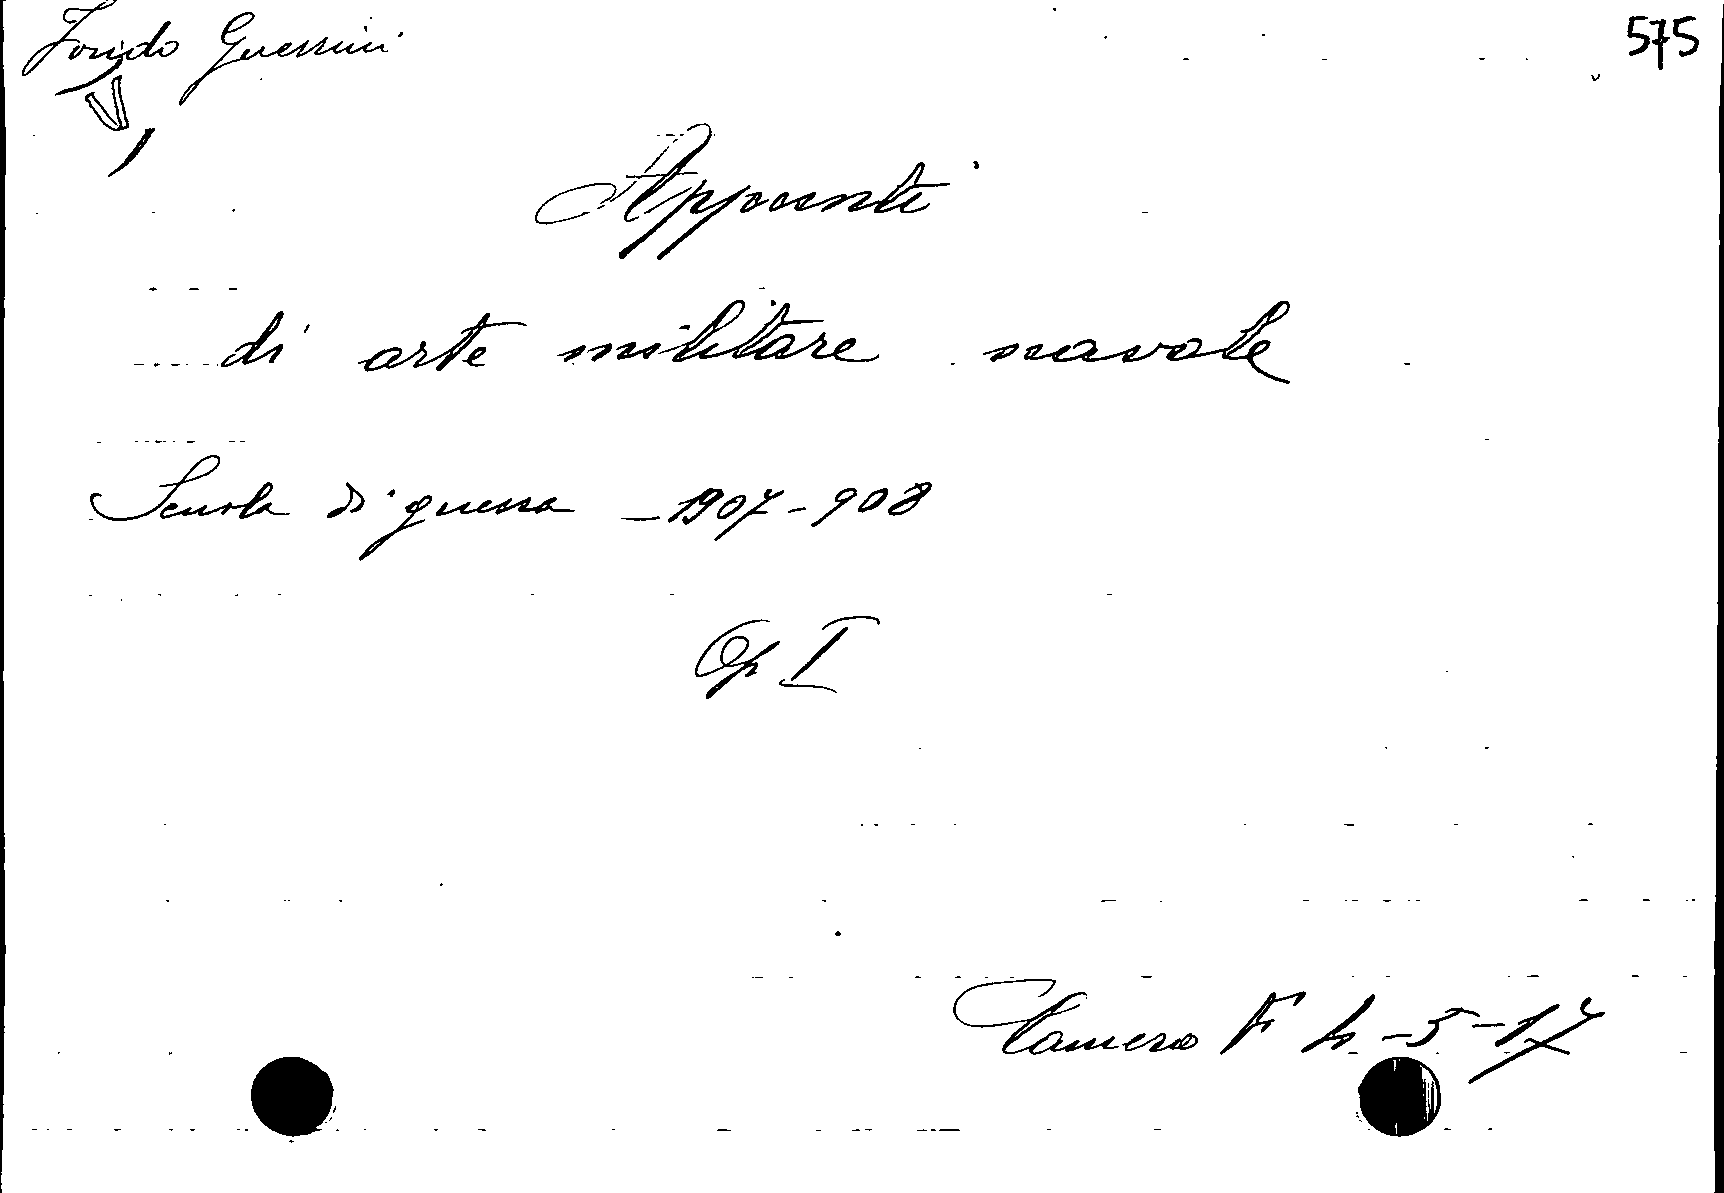 Fondo Guerrini
575
Appunti
di arte militare navale
Scuola di guerra - 1907-908
Op I
Camera F 4-5-17